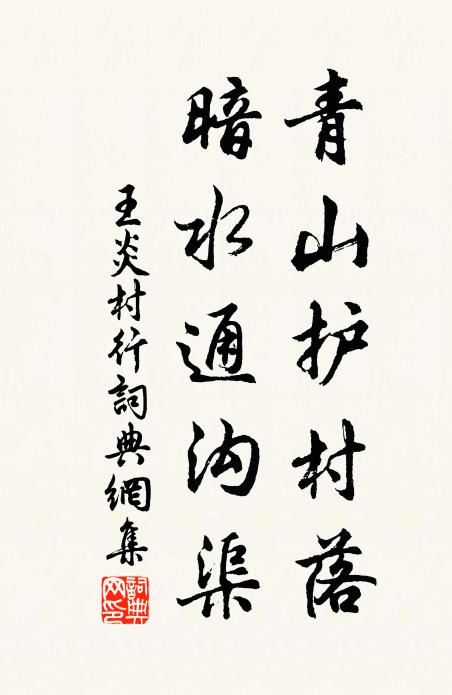 青山护村落
暗水通沟渠
王炎村行詞典網集
詞典網印